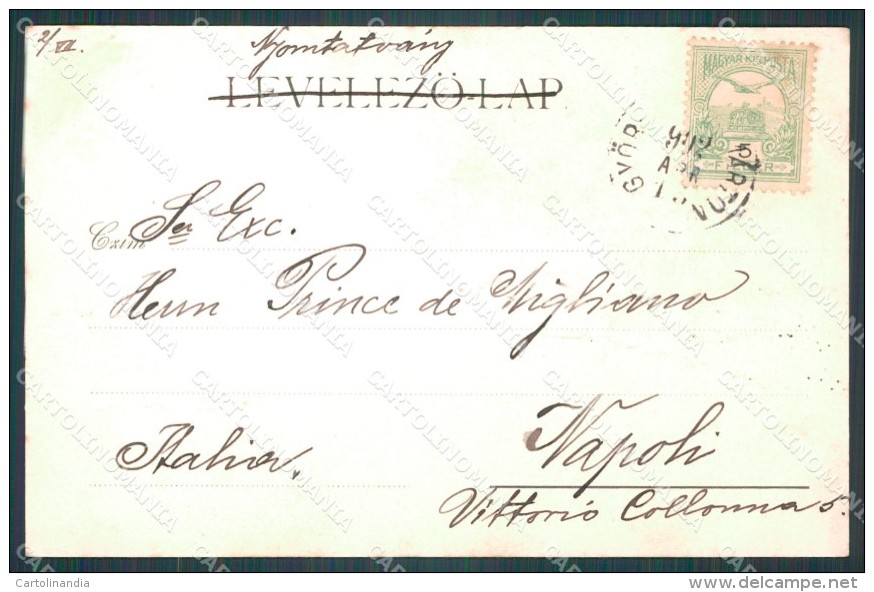 2/VII.
Nyomtatvány
LEVELEZŐ-LAP
MAGYAR KIR. POSTA
5
FILLÉR
GYŐR
902
APR
Czím
Sr Exc.
Herrn Prince de Migliano
Italia.
Napoli
Vittorio Collonna 5.
Cartolinandia
delcampe.net
CARTOLINOMANIA